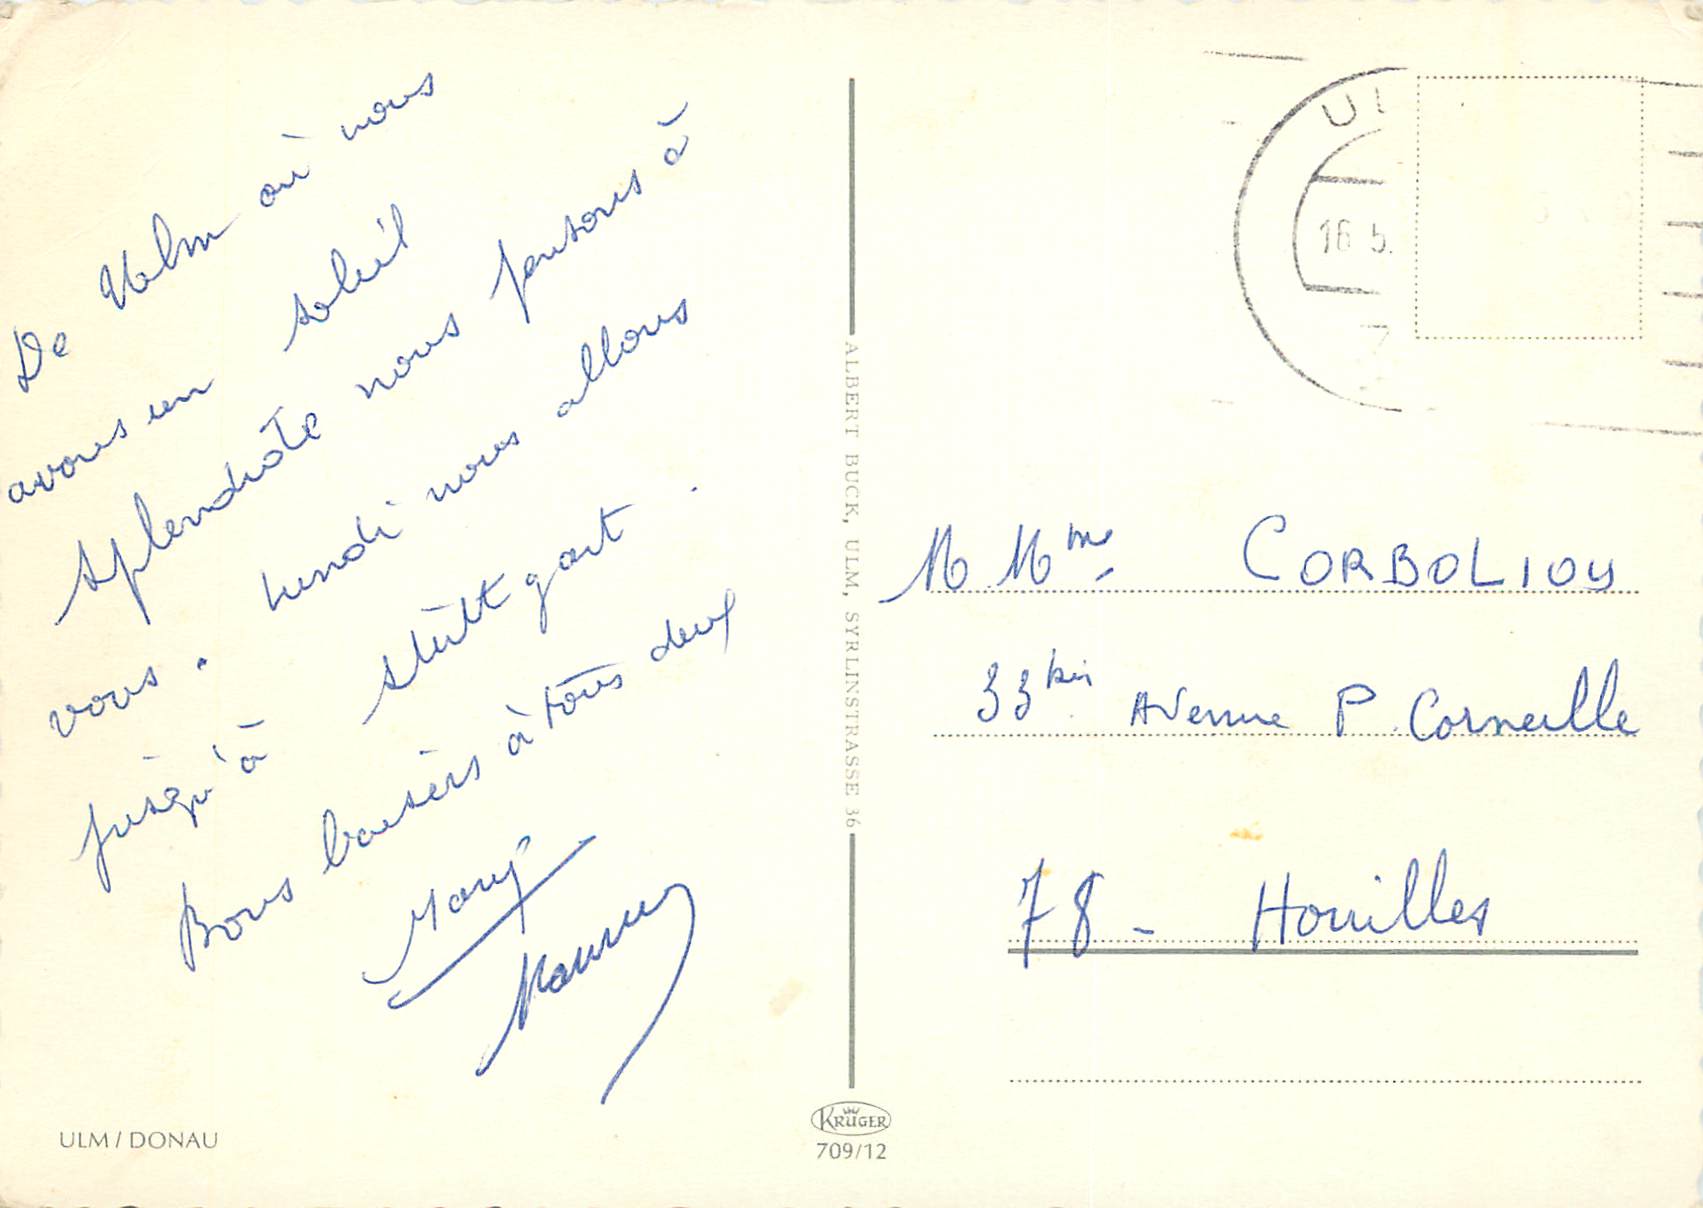 De Ulm où nous
avons un soleil
splendide nous pensons à
vous. Lundi nous allons
jusqu'à stuttgart.
Bons baisers à tous deux
Mary
ALBERT BUCK, ULM, SYRLINSTRASSE 36
16.5.
M Mme CORBOLIOU
33 bis Avenue P. Corneille
78 - Houilles
ULM / DONAU
KRÜGER
709/12